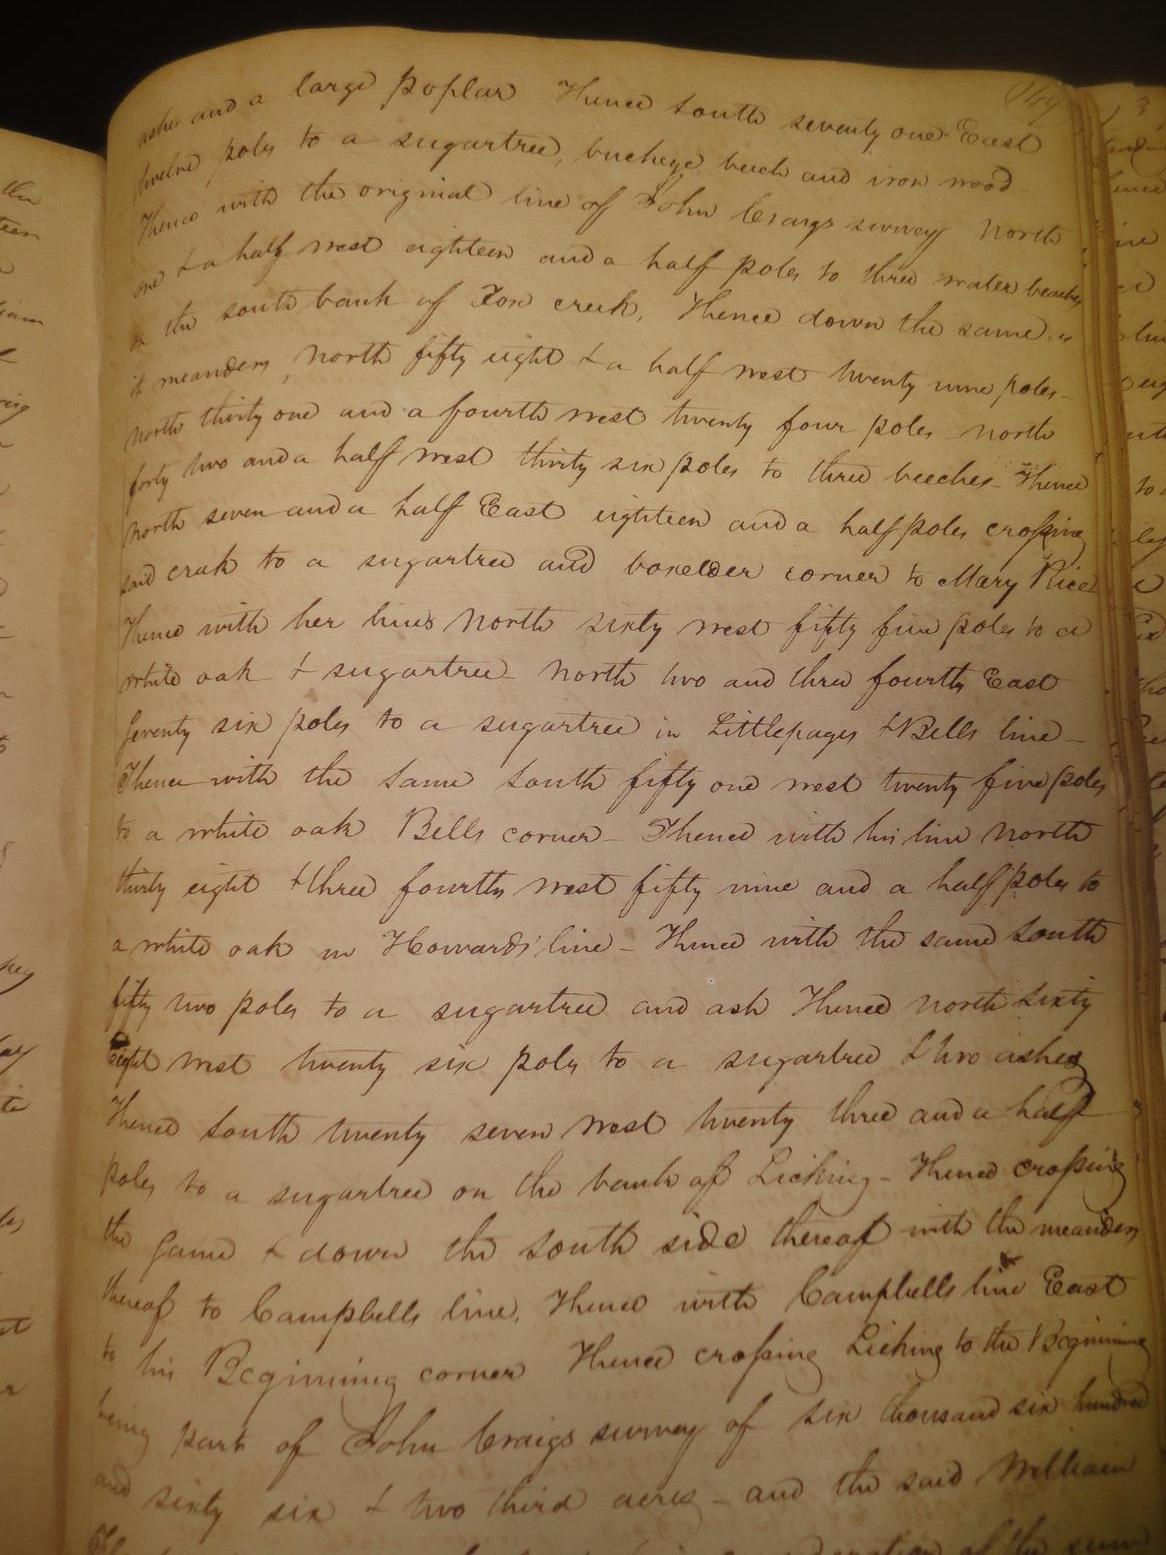 149
ashes and a large poplar Thence South seventy one East
twelve poles to a sugartree, buckeye beech and iron wood
Thence with the original line of John Craigs survey North
one & a half west eighteen and a half poles to three water beeches
on the south bank of Fox creek, Thence down the same as
it meanders, North fifty eight & a half west twenty nine poles
North thirty one and a fourth west twenty four poles north
forty two and a half west thirty six poles to three beeches Thence
North seven and a half East eighteen and a half poles crossing
said creek to a sugartree and boxelder corner to Mary Rice
Thence with her lines North sixty west fifty five poles to a
white oak & sugartree North two and three fourths East
Seventy six poles to a sugartree in Littlepages & Bells line
Thence with the same South fifty one west twenty five poles
to a white oak Bells corner – Thence with his line North
thirty eight & three fourths west fifty nine and a half poles to
a white oak in Howards line – Thence with the same South
fifty two poles to a sugartree and ash Thence north sixty
Eight west twenty six poles to a sugartree & two ashes
Thence South twenty seven west twenty three and a half
poles to a sugartree on the bank of Licking – Thence crossing
the same & down the South side thereof with the meanders
thereof to Campbells line, Thence with Campbells line East
to his Beginning corner Thence crossing Licking to the Beginning
being part of John Craigs survey of six thousand six hundred
and sixty six & two third acres – and the said William
of the sum